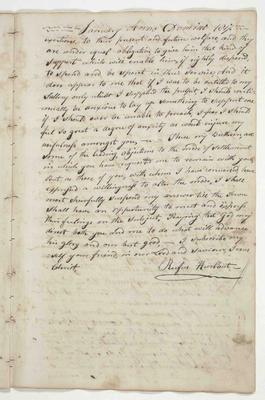 exertions, to their present and future welfare and they
are under equal obligation to give him that kind of
support which will enable him, if rightly disposed,
to spend and be spent in their service, and it
does appear to me that if I was to be entitled to my
Sallary only while I supplyed the pulpit, I should
be anxious to lay up something to support me
if I should ever be unable to preach,
full so great a degree of anxiety as might injure my
usefulness amongst you, — Thus my Brethren are
some of the leading objections to the mode of settlement
in which you have invited me to remain with you
but, as those of you, with whom I have conversed have
expressed a willingness to alter the mode, I shall
most cheerfully suspend my answer till the Town
shall have an opportunity to meet and express
their feelings on the subject, Praying that god may
direct both you and me to do what will advance
his glory and our best good, — I subscribe my
self your friend in our Lord and Saviour Jesus
Christ
Rufus Hurlbut